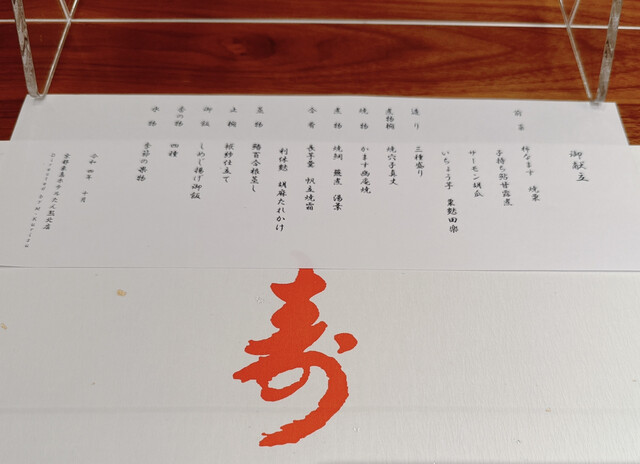 御献立
前菜 柿なます 焼栗
子持ち鮎甘露煮
サーモン胡瓜
いちょう芋 粟麩田楽
造り 三種盛り
煮物椀 焼穴子真丈
焼物 かます幽庵焼
煮物 焼湯葉
合肴 長芋羹 帆立焼霜
利休麩 胡麻だれかけ
蒸物 鮨百合根蒸し
止椀 袱紗仕立て
御飯 しめじ揚げ御飯
香の物 四種
水物 季節の果物
令和四年 十月
寿